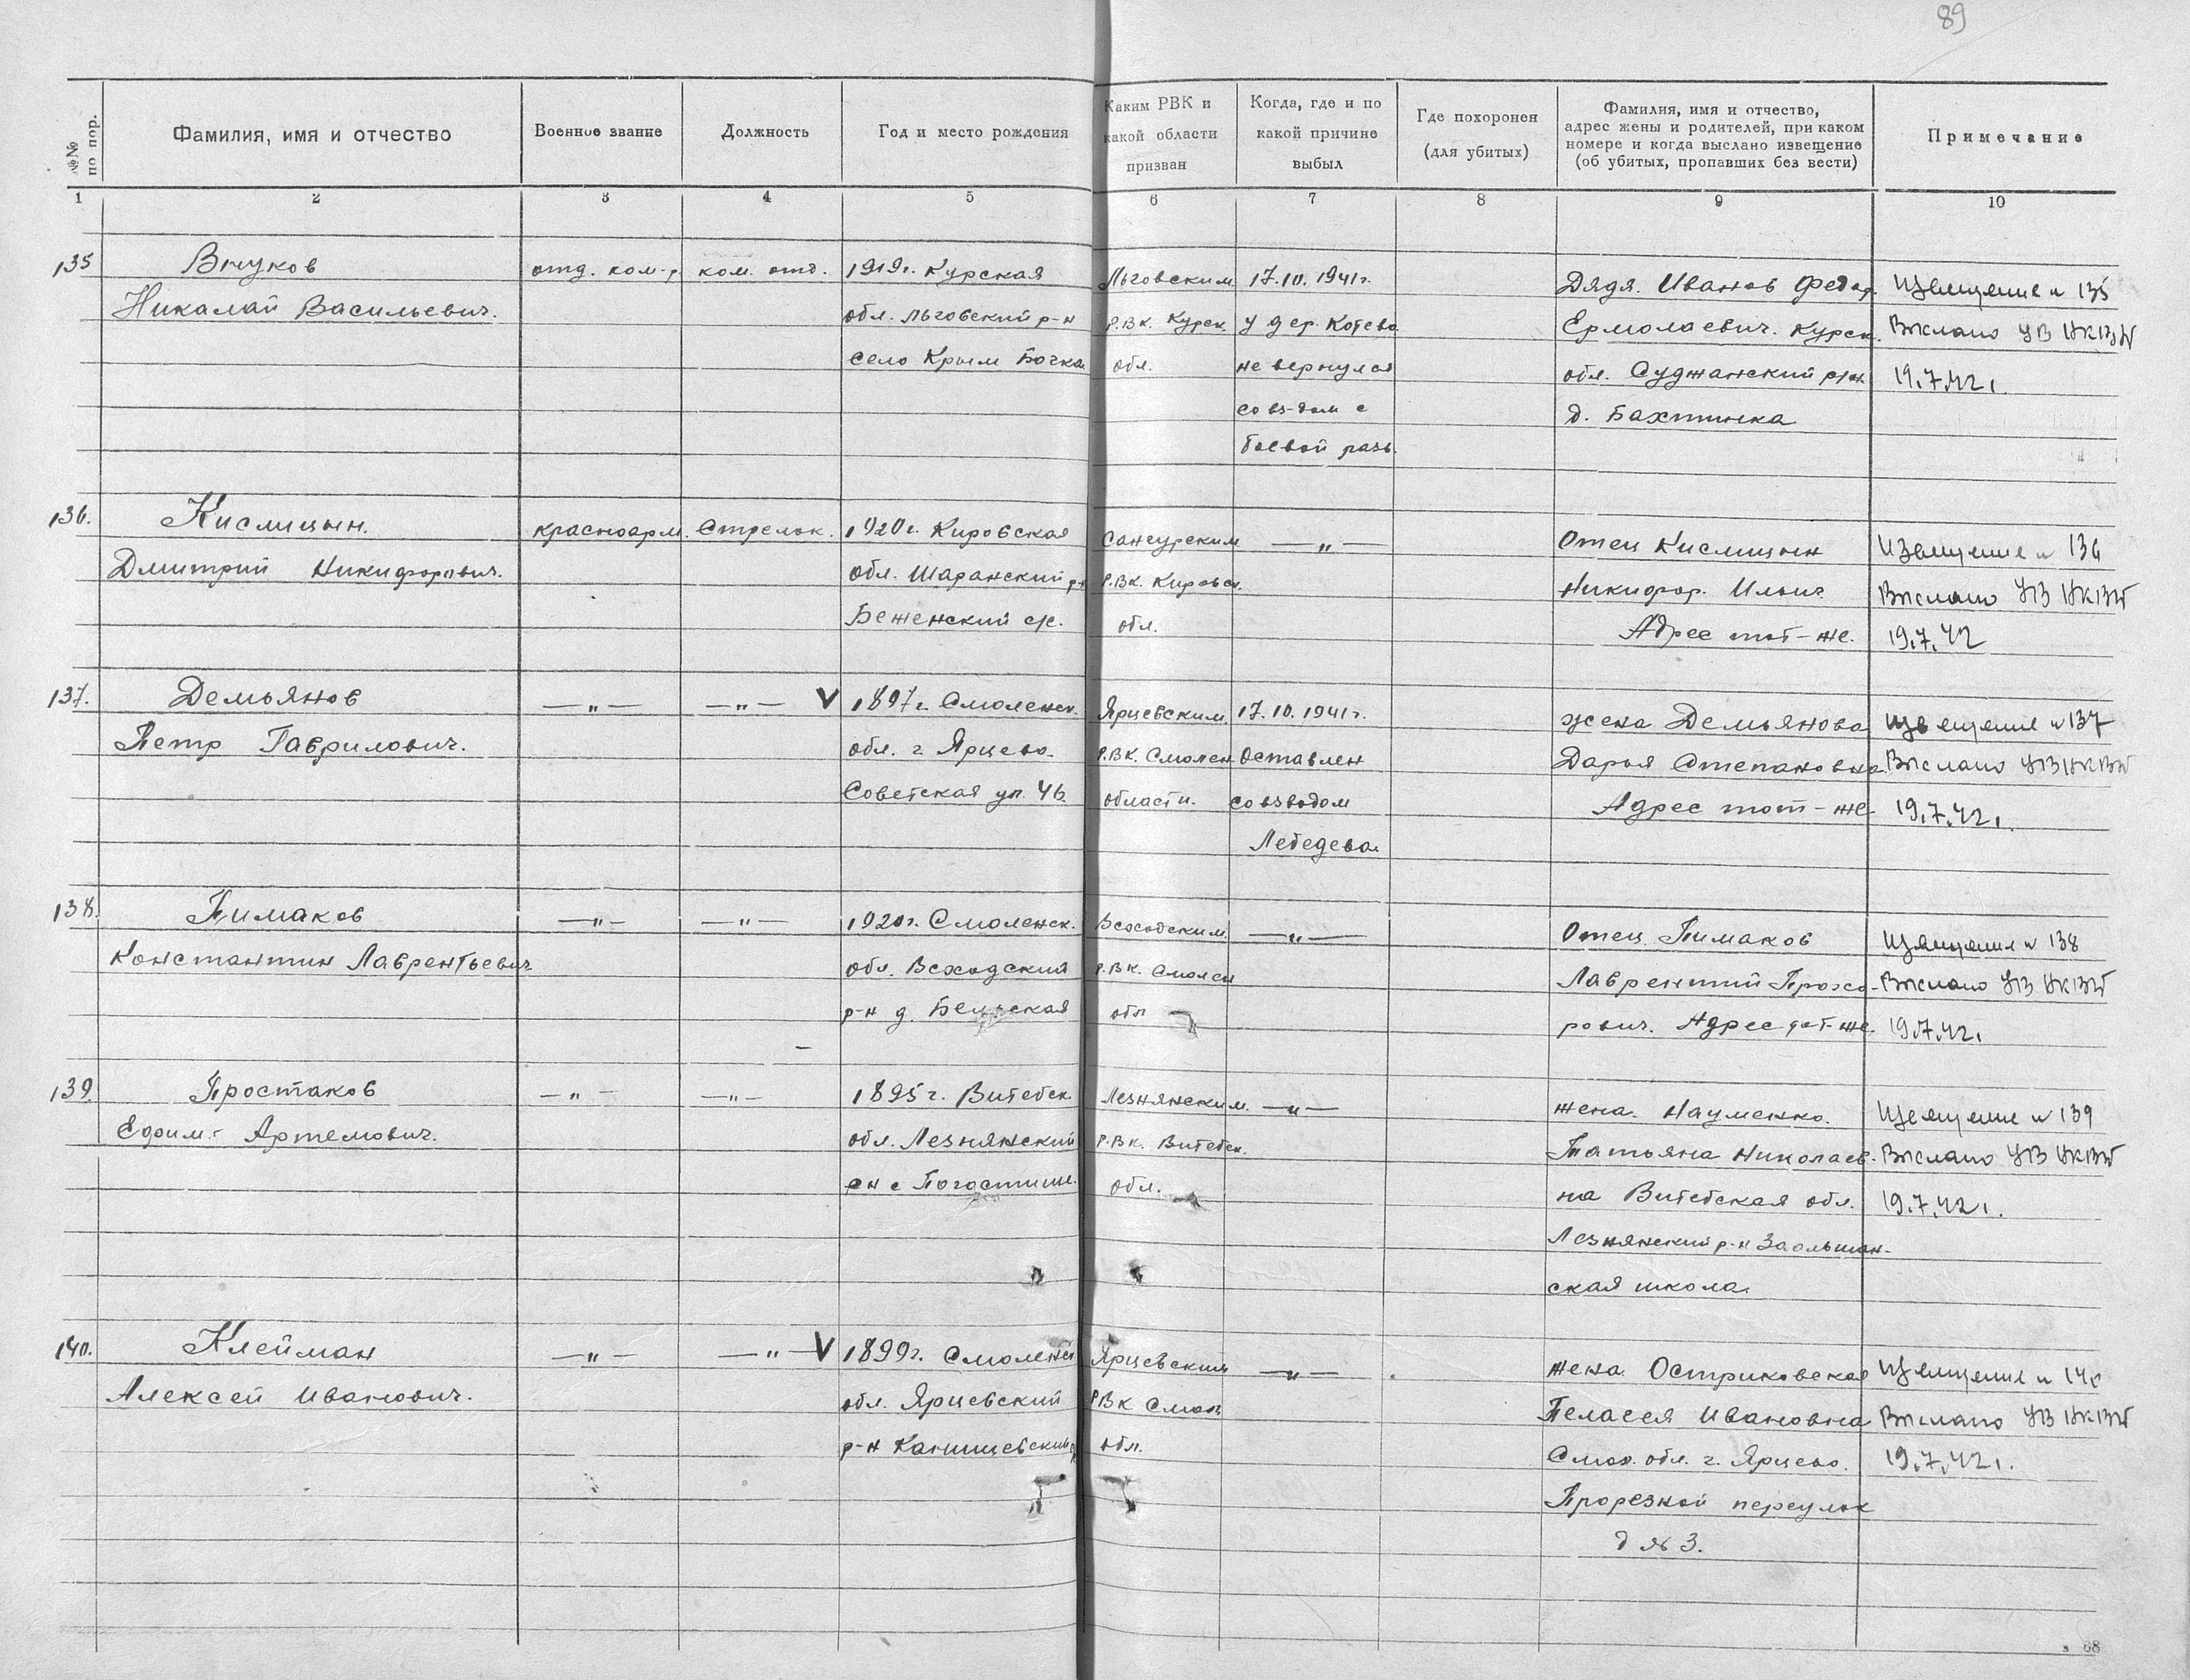 89
№№ по пор.
Фамилия, имя и отчество
Военное звание
Должность
Год и место рождения
Каким РВК и какой области призван
Когда, где и по какой причине выбыл
Где похоронен (для убитых)
Фамилия, имя и отчество, адрес жены и родителей, при каком номере и когда выслано извещение (об убитых, пропавших без вести)
Примечание
1 2 3 4 5 6 7 8 9 10
135
Внуков
Николай Васильевич.
отд. ком-р
ком. отд.
1919г. Курская
обл. Льговский р-н
село Крым Бочка
Льговским
Р.В.К. Курск.
обл.
17.10.1941г.
у дер. Котево
не вернулся
со вз-дом с
боевой разв.
Дядя. Иванов Федор
Ермолаевич. Курск.
обл. Суджанский р/н
д. Бахтинка
Извещение № 135
Выслано УВ НКВД
19.7.42г.
136.
Кислицын.
Дмитрий Никифорович.
красноарм.
Стрелок.
1920г. Кировская
обл. Шаранский р-н
Беженский с/с.
Санчурским
Р.В.К. Кировск.
обл.
—„—
Отец Кислицын
Никифор. Ильич
Адрес тот-же.
Извещение № 136
Выслано УВ НКВД
19.7.42
137.
Демьянов
Петр Гаврилович.
—„—
—„— V
1897г. Смоленск.
обл. г. Ярцево.
Советская ул. 46.
Ярцевским
Р.В.К. Смолен
области.
17.10.1941г.
Оставлен
со взводом
Лебедева
жена Демьянова
Дарья Степановна
Адрес тот-же
Извещение № 137
Выслано УВ НКВД
19.7.42г.
138.
Пимаков
Константин Лаврентьевич
—„—
—„—
1920г. Смоленск.
обл. Всходский
р-н д. Бельская
Всходским
Р.В.К. Смолен
обл
—„—
Отец Пимаков
Лаврентий Прохо-
рович. Адрес тот-же.
Извещение № 138
Выслано УВ НКВД
19.7.42г.
139.
Простаков
Ефим. Артемович.
—„—
—„—
1895г. Витебск.
обл. Лезнянский
р-н с Погостище.
Лезнянским.
Р.В.К. Витебск.
обл.
—„—
жена. Науменко.
Татьяна Николаев-
на Витебская обл.
Лезнянский р-н Заольшан-
ская школа.
Извещение № 139
Выслано УВ НКВД
19.7.42г.
140.
Клейман
Алексей Иванович.
—„—
—„— V
1899г. Смоленск
обл. Ярцевский
р-н
Ярцевским
РВК Смол
обл.
—„—
жена Остриковская
Пелагея Ивановна
Смол. обл. г. Ярцево.
Прорезной переулок
д № 3.
Извещение № 140
Выслано УВ НКВД
19.7.42г.